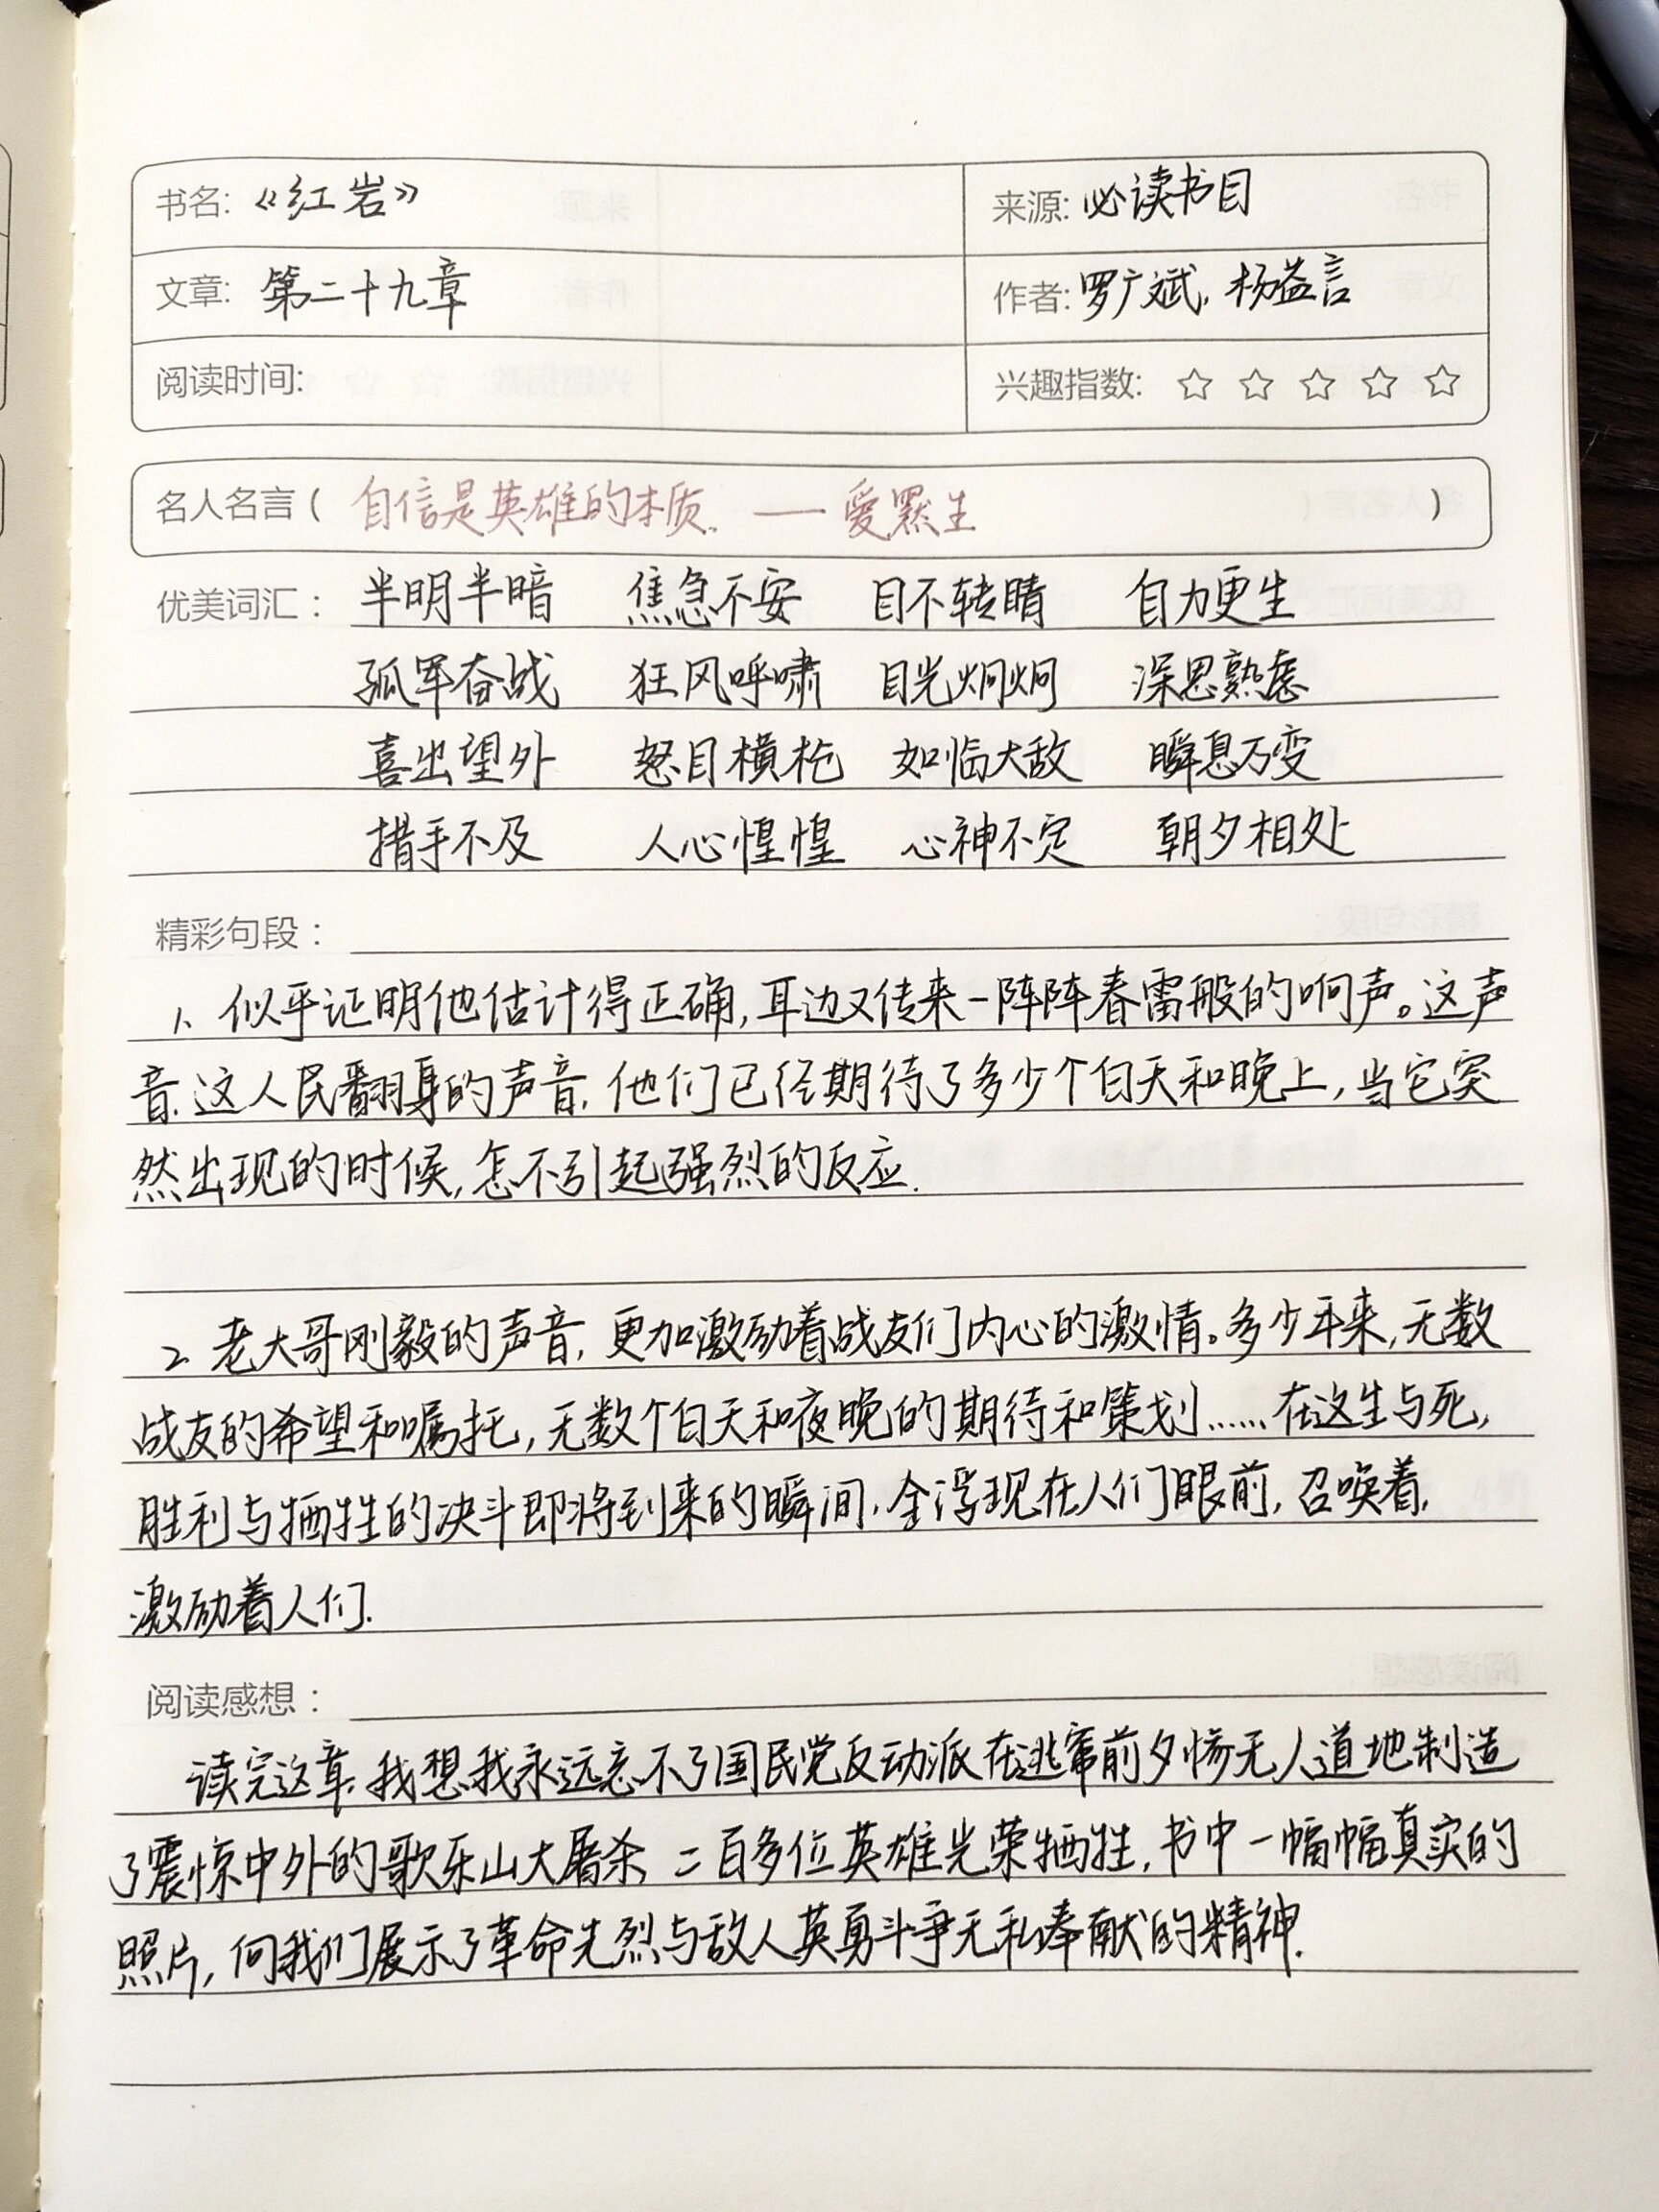 书名:《红岩》 来源:必读书目
文章: 第二十九章 作者:罗广斌、杨益言
阅读时间: 兴趣指数: ☆ ☆ ☆ ☆ ☆
名人名言( 自信是英雄的本质. —— 爱默生 )
优美词汇： 半明半暗 焦急不安 目不转睛 自力更生
孤军奋战 狂风呼啸 目光炯炯 深思熟虑
喜出望外 怒目横枪 如临大敌 瞬息万变
措手不及 人心惶惶 心神不定 朝夕相处
精彩句段：
1、似乎证明他估计得正确,耳边又传来一阵阵春雷般的响声。这声
音、这人民翻身的声音,他们已经期待了多少个白天和晚上,当它突
然出现的时候,怎不引起强烈的反应.
2、老大哥刚毅的声音,更加激励着战友们内心的激情。多少年来,无数
战友的希望和嘱托,无数个白天和夜晚的期待和策划……在这生与死,
胜利与牺牲的决斗即将到来的瞬间,全浮现在人们眼前,召唤着,
激励着人们.
阅读感想：
读完这章,我想我永远忘不了国民党反动派在逃窜前夕惨无人道地制造
了震惊中外的歌乐山大屠杀、二百多位英雄光荣牺牲,书中一幅幅真实的
照片,向我们展示了革命先烈与敌人英勇斗争无私奉献的精神.